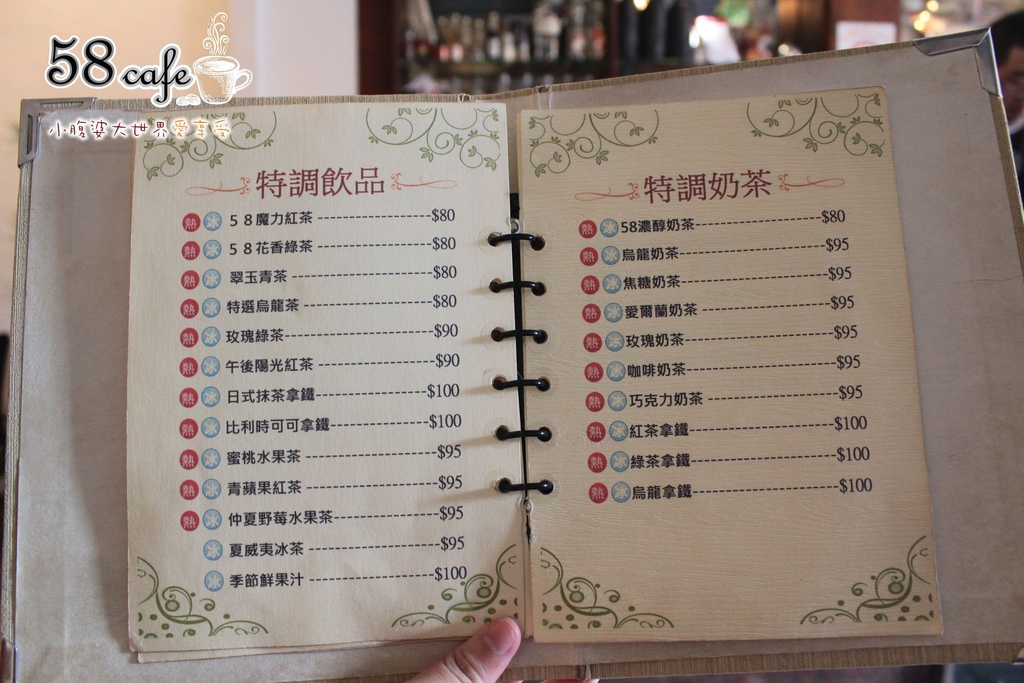 58 cafe
小腹婆大世界愛享受
特調飲品
熱 冰 ５８魔力紅茶 ------------------$80
熱 冰 ５８花香綠茶 ------------------$80
熱 冰 翠玉青茶 ----------------------$80
熱 冰 特選烏龍茶 --------------------$80
熱 冰 玫瑰綠茶------------------------$90
熱 冰 午後陽光紅茶 ------------------$90
熱 冰 日式抹茶拿鐵------------------$100
熱 冰 比利時可可拿鐵----------------$100
熱 冰 蜜桃水果茶 ---------------------$95
熱 冰 青蘋果紅茶 ---------------------$95
熱 冰 仲夏野莓水果茶-----------------$95
冰 夏威夷冰茶 ---------------------$95
冰 季節鮮果汁 --------------------$100
特調奶茶
熱 冰 58濃醇奶茶--------------------$80
熱 冰 烏龍奶茶-----------------------$95
熱 冰 焦糖奶茶-----------------------$95
熱 冰 愛爾蘭奶茶 --------------------$95
熱 冰 玫瑰奶茶-----------------------$95
熱 冰 咖啡奶茶-----------------------$95
熱 冰 巧克力奶茶 --------------------$95
熱 冰 紅茶拿鐵----------------------$100
熱 冰 綠茶拿鐵----------------------$100
熱 冰 烏龍拿鐵----------------------$100